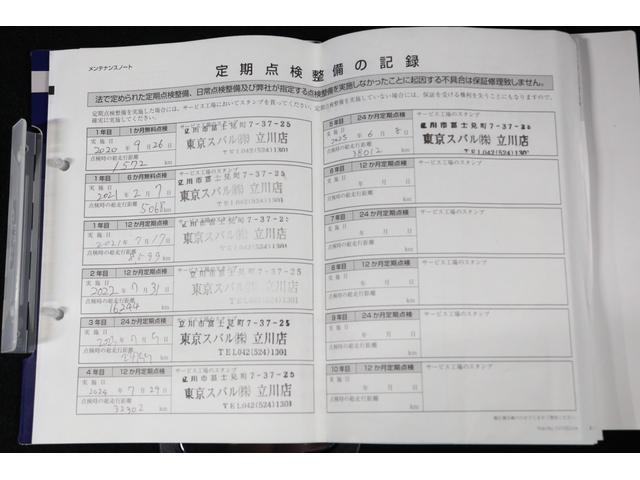 メンテナンスノート
定期点検整備の記録
法で定められた定期点検整備、日常点検整備及び弊社が指定する点検整備を実施しなかったことに起因する不具合は保証修理致しません。
定期点検整備を実施した場合には、サービス工場においてスタンプを貰ってください。定期点検整備を実施していない場合には、保証を受ける権利を失うことにもなりますので、
確実に実施してください。
1年目 1か月無料点検
実施日
2020年9月26日
点検時の総走行距離
1572 km
サービス工場のスタンプ
立川市富士見町7-37-25
東京スバル㈱ 立川店
TEL042(524)1301
1年目 6か月無料点検
実施日
2021年2月7日
点検時の総走行距離
5068 km
立川市富士見町7-37-25
東京スバル㈱ 立川店
TEL042(524)1301
1年目 12か月定期点検
実施日
2021年7月17日
点検時の総走行距離
km
立川市富士見町7-37-2
東京スバル㈱ 立川店
TEL042(524)1301
2年目 12か月定期点検
実施日
2022年7月31日
点検時の総走行距離
16244 km
立川市富士見町7-37-25
東京スバル㈱ 立川店
TEL042(524)1301
3年目 24か月定期点検
実施日
点検時の総走行距離
km
立川市富士見町7-37-25
東京スバル㈱ 立川店
TEL042(524)1301
4年目 12か月定期点検
実施日
2024年7月29日
点検時の総走行距離
32302 km
サービス工場のスタンプ
立川市富士見町7-37-25
東京スバル㈱ 立川店
TEL042(524)1301
5年目 24か月定期点検
実施日
2025年6月8日
点検時の総走行距離
38012 km
立川市富士見町7-37-25
東京スバル㈱ 立川店
TEL042(524)1301
6年目 12か月定期点検
実施日
年 月 日
点検時の総走行距離
km
サービス工場のスタンプ
7年目 24か月定期点検
実施日
年 月 日
点検時の総走行距離
km
サービス工場のスタンプ
8年目 12か月定期点検
実施日
年 月 日
点検時の総走行距離
km
サービス工場のスタンプ
9年目 24か月定期点検
実施日
年 月 日
点検時の総走行距離
km
サービス工場のスタンプ
10年目 12か月定期点検
実施日
年 月 日
点検時の総走行距離
km
サービス工場のスタンプ